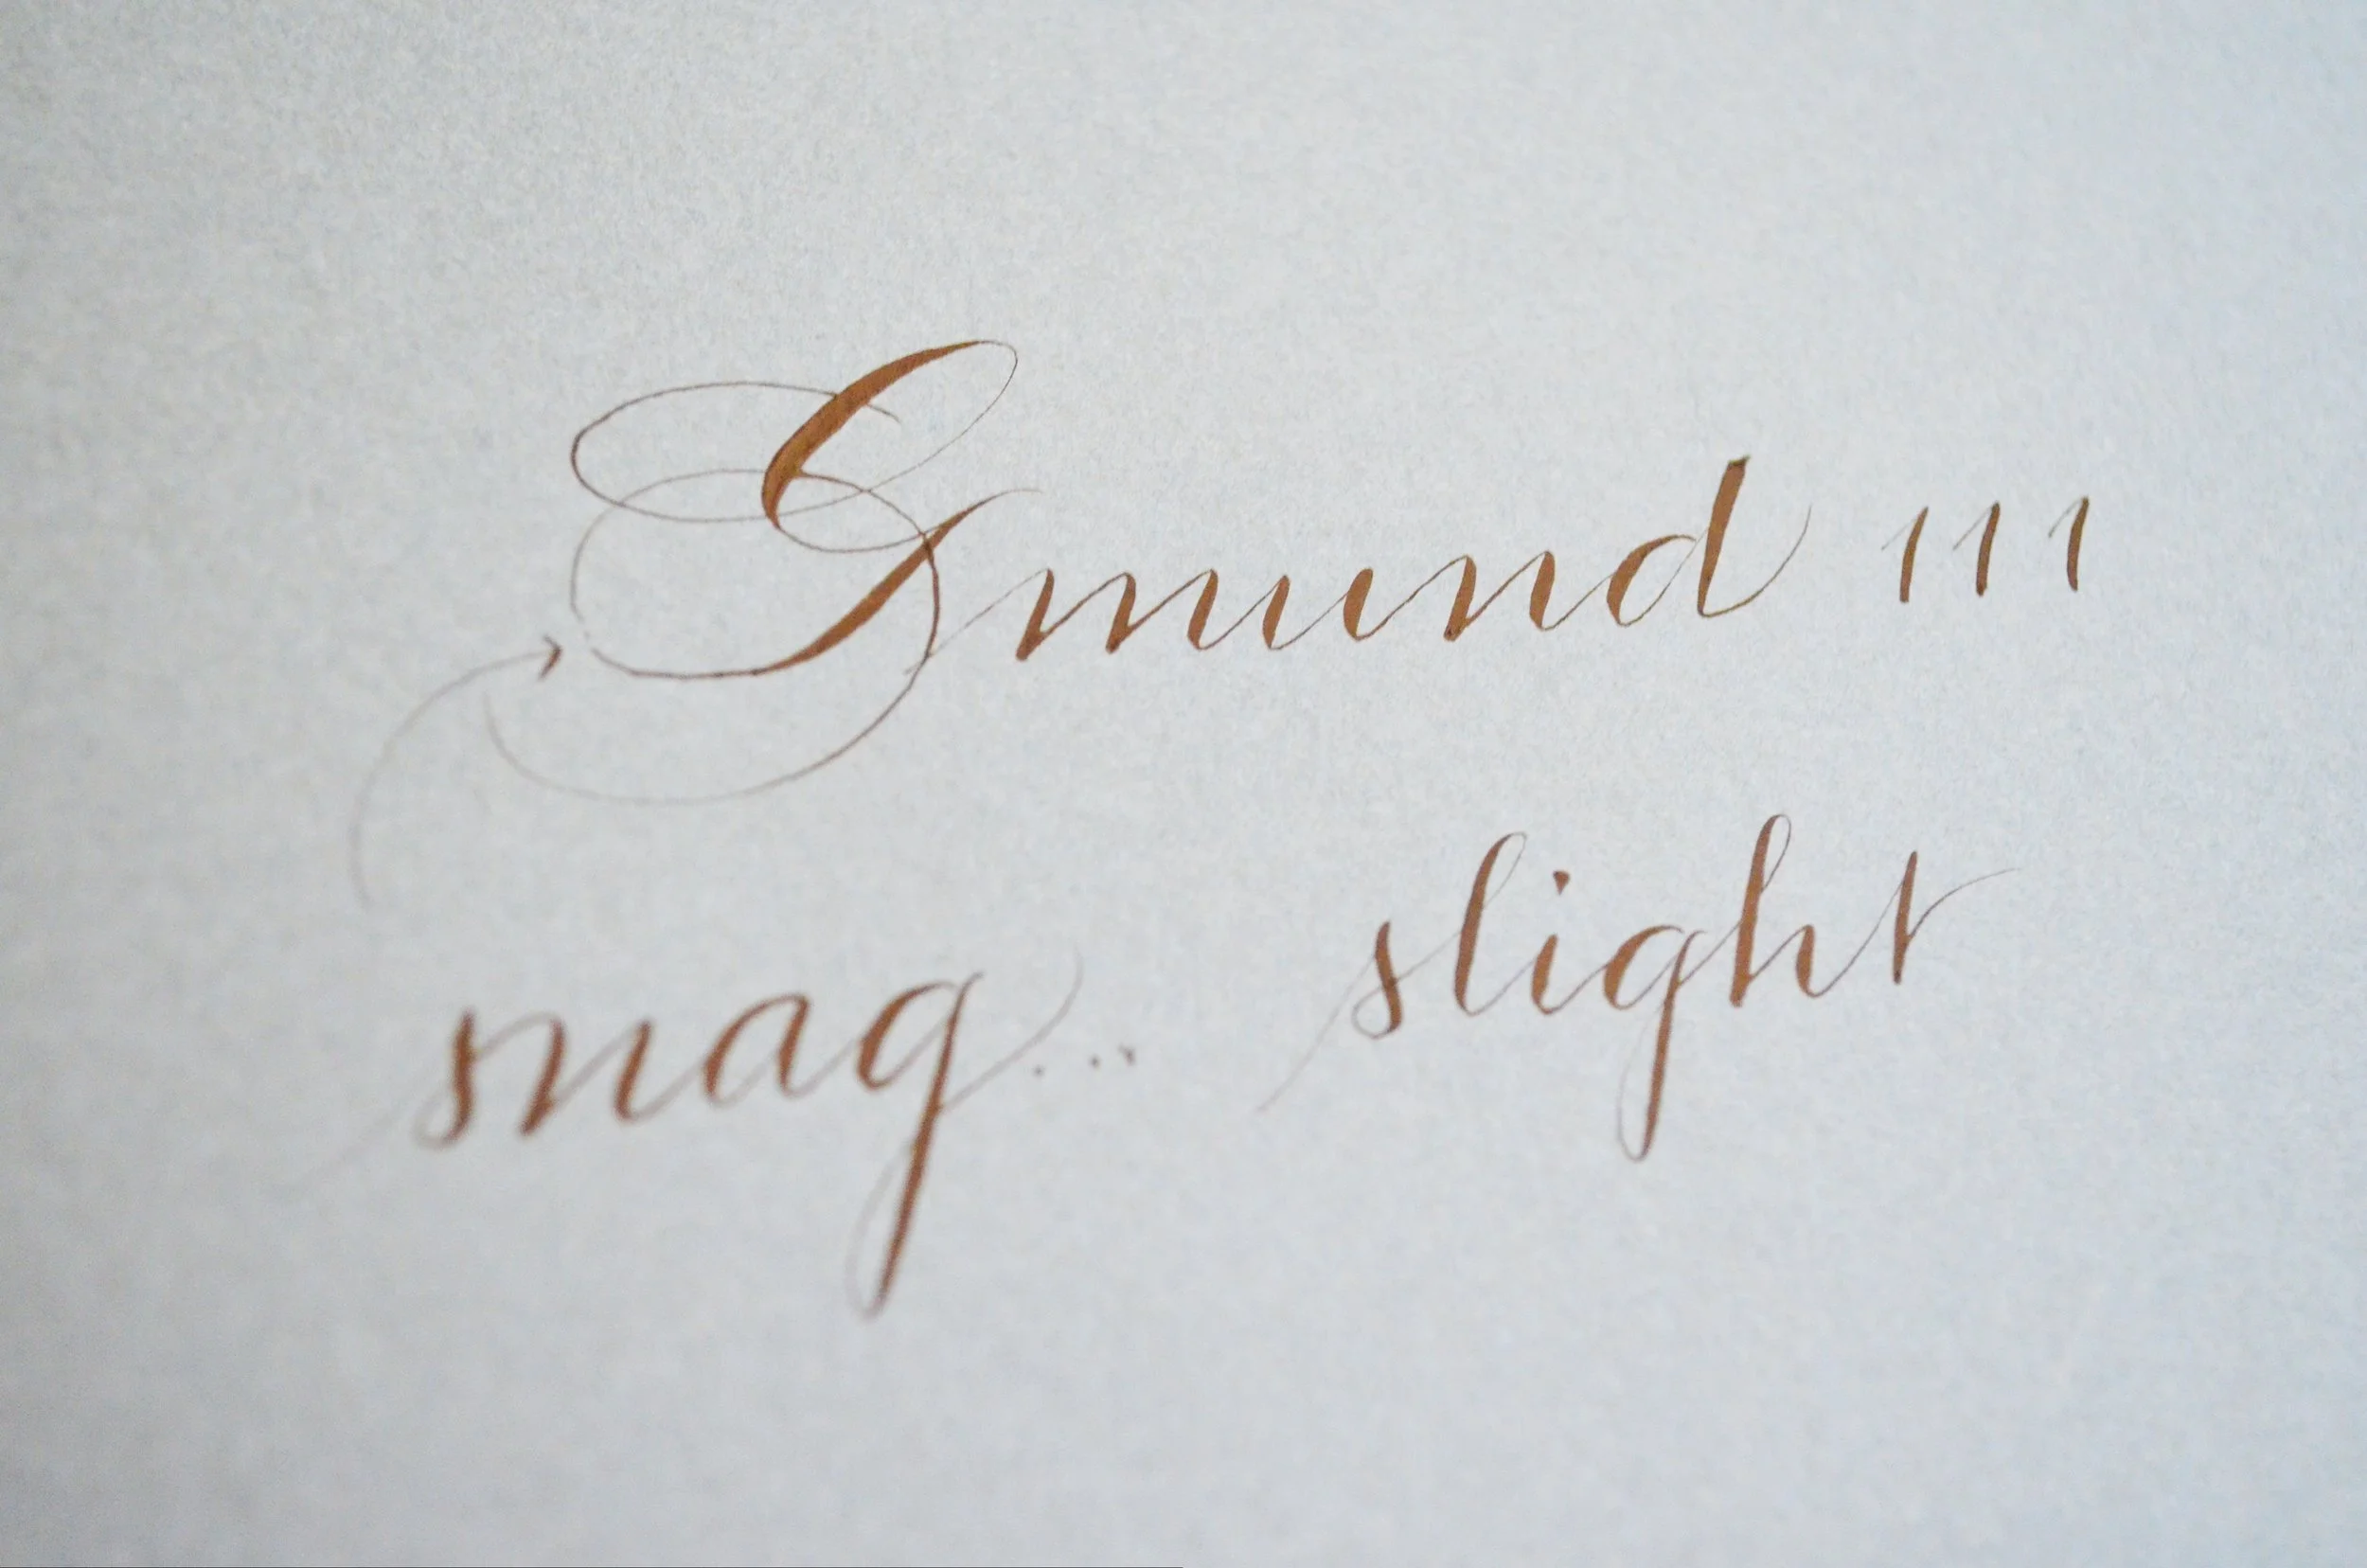 Gmund 111
snag... slight